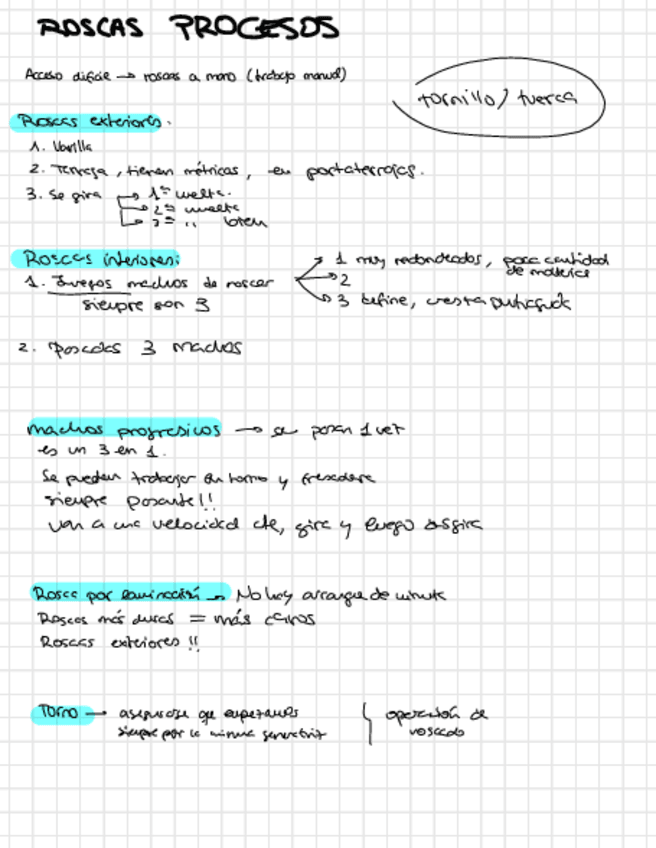 ROSCAS PROCESOS
Acceso dificil → roscas a mano (trabajo manual)
tornillo / tuerca
Roscas exteriores.
1. Varilla
2. Terraja, tienen métricas, en portaterrajas.
3. Se gira → 1ª vuelta.
→ 2ª vuelta
→ 3ª " bien
Roscas interiores:
1. Juegos machos de roscar
siempre son 3
→ 1 muy redondeados, poca cantidad
de materia
→ 2
→ 3 define, cresta puntiaguda
2. Pasadas 3 machos
machos progresivos → se pasan 1 vez
es un 3 en 1.
Se pueden trabajar en torno y fresadora
siempre pasante!!
van a una velocidad cte, gira y luego desgira
Rosca por laminación → No hay arranque de viruta
Roscas más duras = más caras
Roscas exteriores !!
Torno → asegurarse que empezamos
siempre por la misma generatriz
operación de
roscado